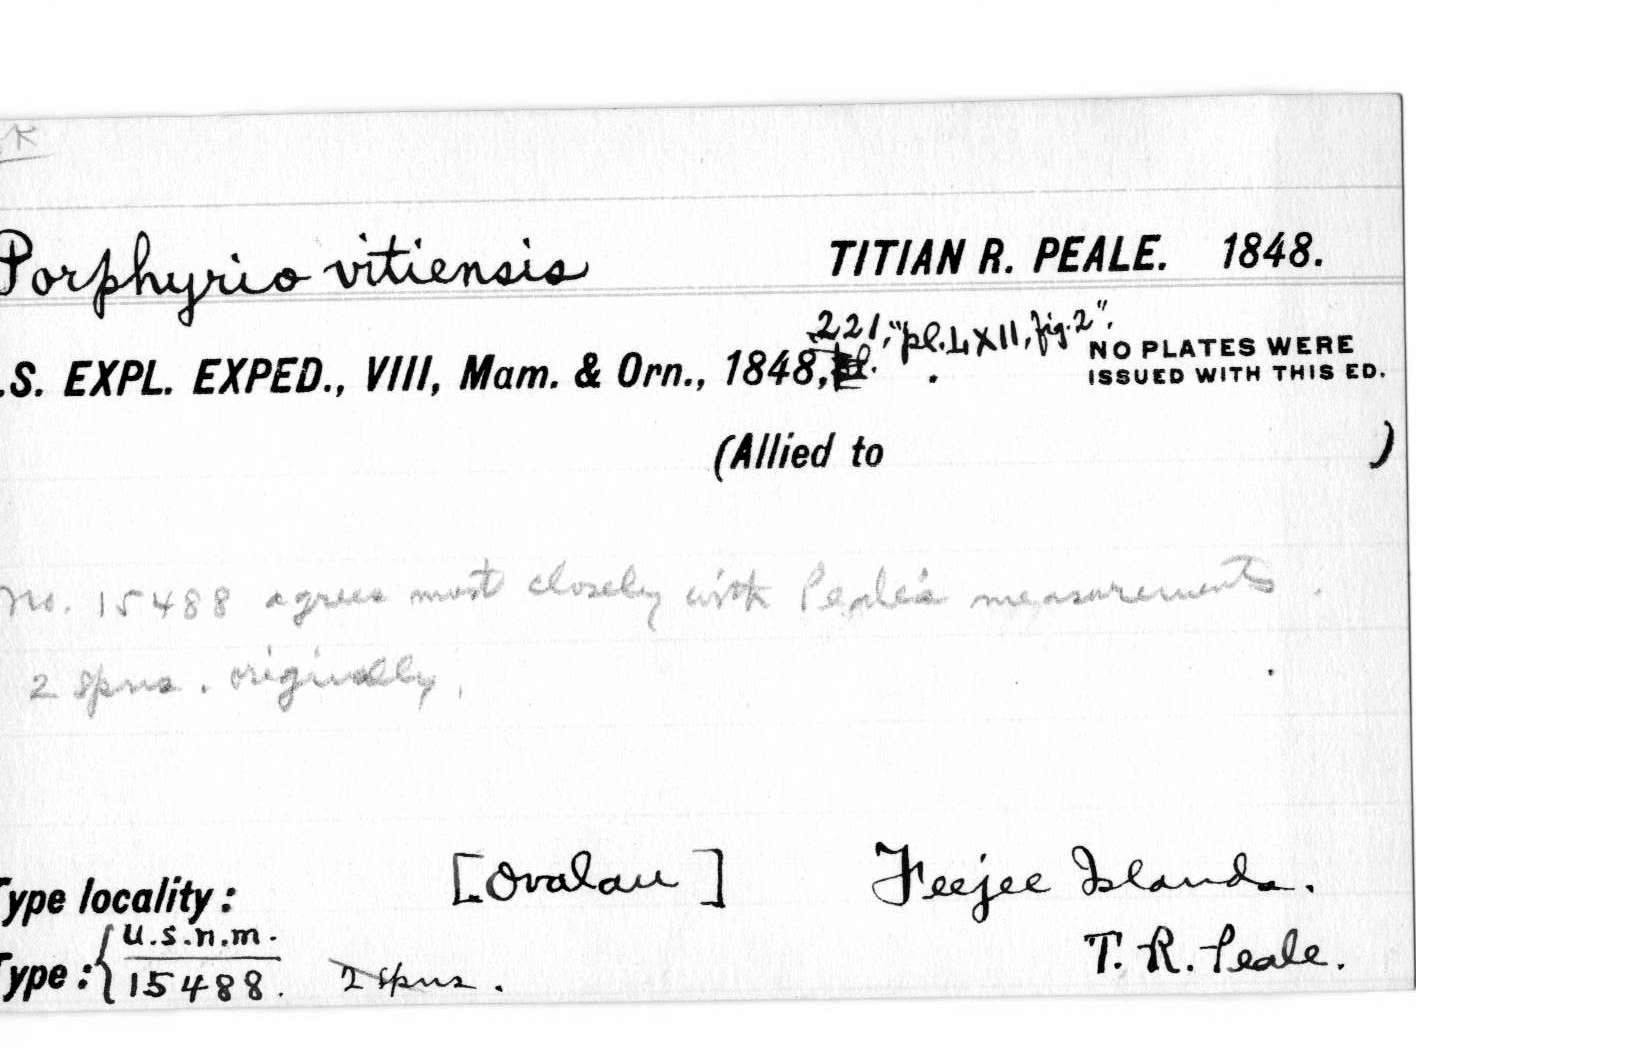 K
Porphyrio vitiensis TITIAN R. PEALE. 1848.
221, "pl. LXII, fig. 2".
.S. EXPL. EXPED., VIII, Mam. & Orn., 1848, NO PLATES WERE
ISSUED WITH THIS ED.
(Allied to )
No. 15488 agrees most closely with Peale's measurements.
2 spns. originally.
Type locality: [Ovalau] Feejee Islands.
Type: { U.S.N.M. 15488. 2 spns. T. R. Peale.